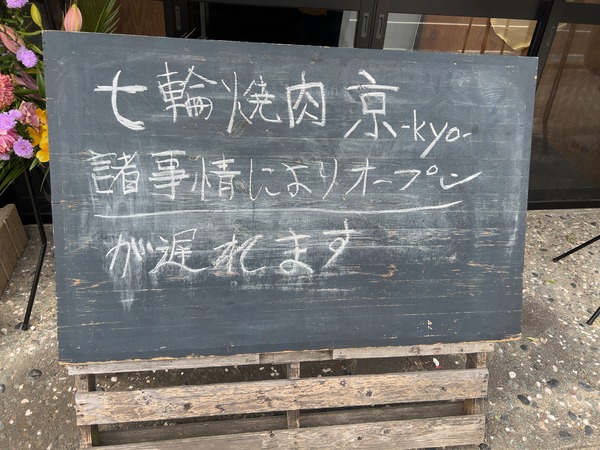 七輪焼肉 京-kyo-
諸事情によりオープン
が遅れます